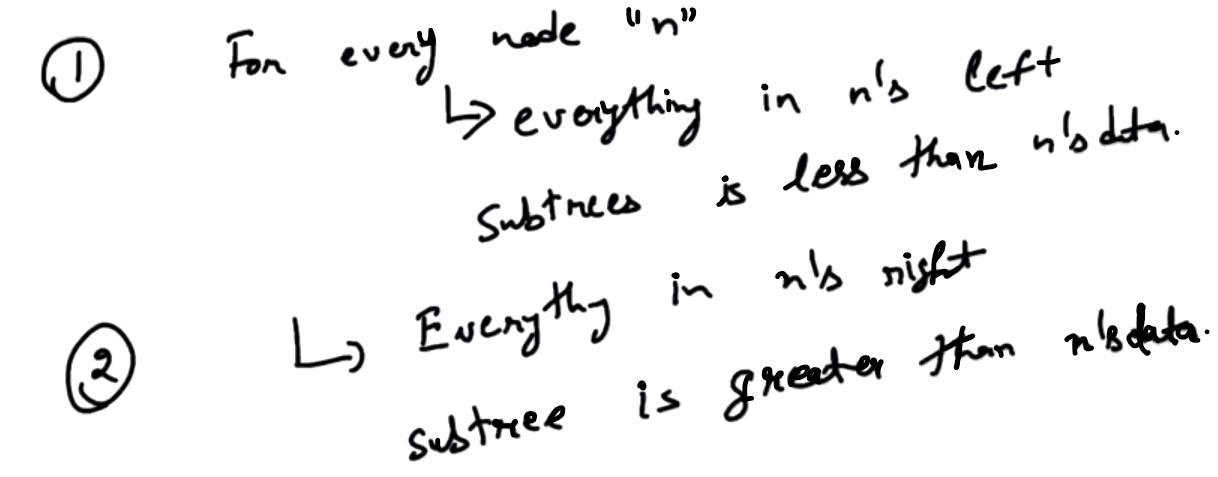 ① For every node "n"
↳ everything in n's left
subtrees is less than n's data.
② ↳ Everythy in n's right
subtree is greater than n's data.